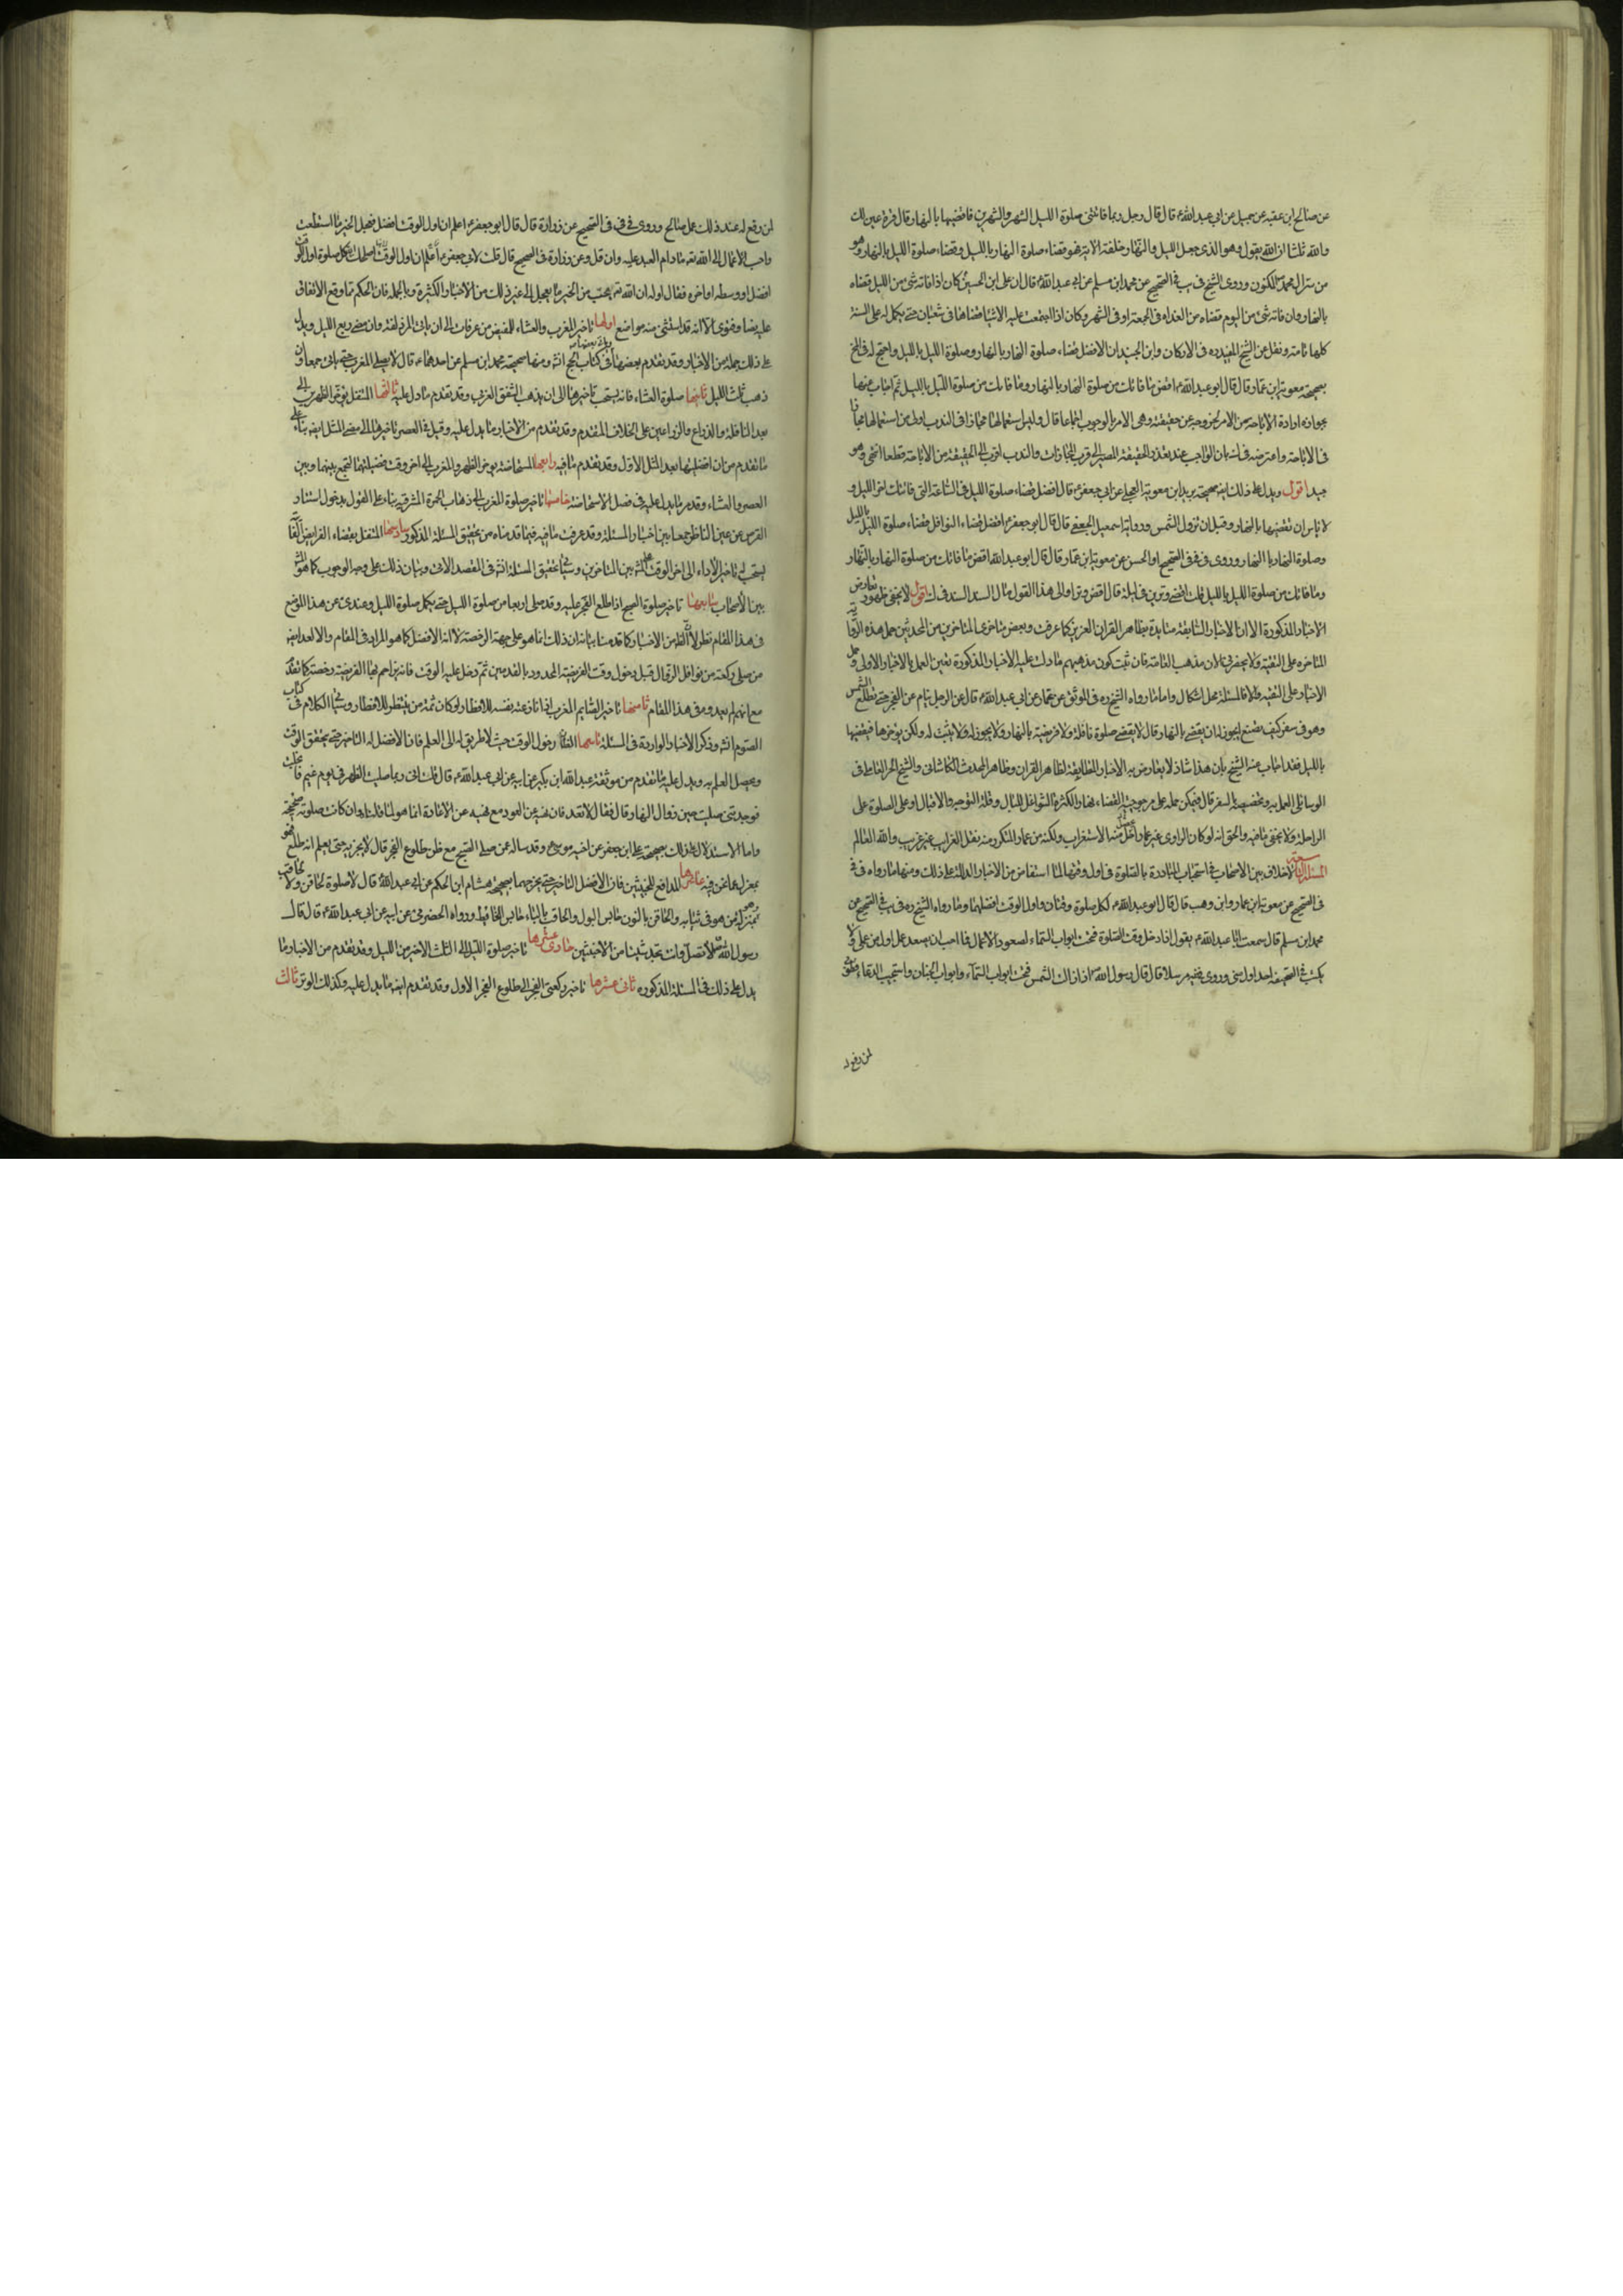 عن صالح ابن عقبه عن جميل عن ابي عبد الله ع قال قال رجل ربما فاتتني صلوة الليل الشهر والشهرين فاقضيها بالنهار وقال قرة عين لك
والله ثلثا ان الله يقول وهو الذي جعل الليل والنهار خلفة الاية فهو قضاء صلوة النهار بالليل وقضاء صلوة الليل بالنهار وهو
من سر ال محمد المكنون وروى الشيخ في يب في الصحيح عن محمد ابن مسلم عن ابي عبد الله ع قال ان علي ابن الحسين ع كان اذا فاته شئ من الليل قضاه
بالنهار وان فاته شئ من اليوم قضاه من الغد او في الجمعة او في الشهر وكان اذا اجتمعت عليه الاشياء قضاها في شعبان حتى يكمل له عمل السنة
كلها تامة ونقل عن الشيخ المفيد ره في الاركان وابن الجنيد ان الافضل قضاء صلوة النهار بالنهار وصلوة الليل بالليل واحتج له في المخ
بصحيحة معوية ابن عمار قال قال ابو عبد الله ع اقض ما فاتك من صلوة النهار بالنهار وما فاتك من صلوة الليل بالليل ثم اجاب عنها
بجواز ارادة الاباحة من الامر لخروجه عن حقيقته وهي الامر بالوجوب اجماعا قال وليس استعمالها مجازا في الندب اولى من استعمالها مجازا
في الاباحة واعترضه في ك بان الواجب عند تعذر الحقيقة المصير الى اقرب المجازات والندب اقرب الى الحقيقة من الاباحة قطعا انتهى وهو
جيد اقول ويدل على ذلك ايضا صحيحة بريد ابن معوية العجلي عن ابي جعفر ع قال افضل قضاء صلوة الليل في الساعة التي فاتتك اخر الليل و
لا باس ان تقضيها بالنهار وقبل ان تزول الشمس ورواية اسمعيل الجعفي قال قال ابو جعفر ع افضل قضاء النوافل قضاء صلوة الليل بالليل
وصلوة النهار بالنهار وروى في في في الصحيح او الحسن عن معوية ابن عمار قال قال ابو عبد الله اقض ما فاتك من صلوة النهار بالنهار
وما فاتك من صلوة الليل بالليل قلت اقضي وترين في ليلة قال اقض وترا والى هذا القول مال السيد السند في ك اقول لا يخفى ظهور تعارض
الاخبار المذكورة الا ان الاخبار السابقة متايدة بظاهر القران العزيز كما عرفت وبعض متاخري المتاخرين من المحدثين حمل هذه الروايات
المتاخره على التقية ولا يحضرني الان مذهب العامة فان ثبت كون مذهبهم ما دلت عليه الاخبار المذكورة تعين العمل بالاخبار الاولى وحمل
الاخبار على التقيه والا فالمسئلة محل اشكال واما ما رواه الشيخ ره في الموثق عن عمار عن ابي عبد الله ع قال عن الرجل ينام عن الفجر حتى تطلع الشمس
وهو في سفر كيف يصنع ايجوز له ان يقضي بالنهار قال لا يقضي صلوة نافلة ولا فريضة بالنهار ولا يجوز له ولا يثبت له ولكن يؤخرها فيقضيها
بالليل فقد اجاب عنه الشيخ بان هذا شاذ لا يعارض به الاخبار المطابقة لظاهر القران وظاهر المحدث الكاشاني والشيخ الحر العاملي في
الوسائل العمل به وتخصيصه بالسفر قال فيمكن حمله على مرجوحية القضاء نهارا لكثرة الشواغل للبال وقلة التوجه والاقبال او على الصلوة على
الراحلة ولا يخفى ما فيه والحق انه لو كان الراوي غير عمار لحصل منه الاستغراب ولكنه من عمار المتكرر منه نقل الغرايب غير غريب والله العالم
المسئلة السابعة لا خلاف بين الاصحاب في استحباب المبادرة بالصلوة في اول وقتها لما استفاض من الاخبار الدالة على ذلك ومنها ما رواه في في
في الصحيح عن معوية ابن عمار وابن وهب قال قال ابو عبد الله ع لكل صلوة وقتان واول الوقت افضلهما وما رواه الشيخ ره في يب في الصحيح عن
محمد ابن مسلم قال سمعت ابا عبد الله ع يقول اذا دخل وقت الصلوة فتحت ابواب السماء لصعود الاعمال فما احب ان يصعد عمل اول من عملي ولا
يكتب في الصحيفة احد اول مني وروى في يه مرسلا قال قال رسول الله ص اذا زالت الشمس فتحت ابواب السماء وابواب الجنان واستجيب الدعاء فطوبى
لمن رفع له
لمن رفع له عند ذلك عمل صالح وروى في في في الصحيح عن زرارة قال قال ابو جعفر ع اعلم ان اول الوقت افضل فعجل الخير ما استطعت
واحب الاعمال الى الله تع ما دام العبد عليه وان قل وعن زرارة في الصحيح قال قلت لابي جعفر ع اصلحك الله وقت كل صلوة اول الوقت
افضل او وسطه او اخره فقال اوله ان الله تع يحب من الخير ما يعجل الى غير ذلك من الاخبار الكثيرة وبالجمله فان الحكم مما وقع الاتفاق
عليه نصا وفتوى الا انه قد استثنى منه مواضع اولها تاخير المغرب والعشاء للمفيض من عرفات الى ان ياتي المزدلفة وان مضى ربع الليل ويدل
على ذلك جملة من الاخبار وقد تقدم بعضها في كتاب الحج انش ومنها صحيحة محمد ابن مسلم عن احدهما ع قال لا يصلي المغرب حتى ياتي جمعا وان
ذهب ثلث الليل ثانيها صلوة العشاء فانه يستحب تاخيرها الى ان يذهب الشفق الغربي وقد تقدم ما دل عليه ثالثها المتنفل يؤخر الظهرين الى
بعد النافلة والذراع والذراعين على الخلاف المتقدم وقد تقدم من الاخبار ما يدل عليه وقيل في العصر تاخيرها الى مضي المثل ايضا بناء على
ما تقدم من ان افضليتها بعد المثل الاول وقد تقدم ما فيه رابعها المستحاضة تؤخر الظهر والمغرب الى اخر وقت فضيلتهما لتجمع بينهما وبين
العصر والعشاء وقد مر ما يدل عليه في فصل الاستحاضة خامسها تاخير صلوة المغرب الى ذهاب الحمرة المشرقية بناء على القول بدخول استتار
القرص عن عين الناظر جمعا بين اخبار المسئلة وقد عرفت ما فيه فيما قدمناه من تحقيق المسئلة المذكور سادسها المتنفل بقضاء الفرايض الفا
يستحب له تاخير الاداء الى اخر الوقت على المش بين المتاخرين وسياتي تحقيق المسئلة انش في المقصد الاتي وبيان ذلك على وجه الوجوب كما هو المش
بين الاصحاب سابعها تاخير صلوة الصبح اذا طلع الفجر عليه وقد صلى اربعا من صلوة الليل حتى يكمل صلوة الليل وعندي عن هذا الموضع
في هذا المقام نظر لان الظ من الاخبار كما قدمنا بيانه ان ذلك انما هو على جهة الرخصة لا انه الافضل كما هو المراد في المقام والا لعد ايضا
من صلى ركعة من نوافل الزوال قبل دخول وقت الفريضة المحدود بالقدمين ثم دخل عليه الوقت فانه يزاحم بها الفريضة رخصة كما تقدم
مع انهم لم يعدوه في هذا المقام ثامنها تاخير الصايم المغرب اذا نازعته نفسه للافطار او كان ثمة من ينتظره للافطار وسياتي الكلام في كتاب
الصوم انش وذكر الاخبار الواردة في المسئلة تاسعها الظان دخول الوقت حيث لا طريق له الى العلم فان الافضل له التاخير حتى يتحقق الوقت
ويحصل العلم به ويدل عليه ما تقدم من موثقة عبد الله ابن بكير عن ابيه عن ابي عبد الله ع قال قلت اني ربما صليت الظهر في يوم غيم فانجلت
فوجدتني صليت حين زوال النهار قال فقال لا تعد ولا تعد فان نهيه عن العود مع نهيه عن الاعادة انما هو لما قلناه وان كانت صلوته صحيحة
واما الاستدلال على ذلك بصحيحة علي ابن جعفر عن اخيه موسى ع وقد ساله عن صلى الصبح مع ظن طلوع الفجر قال لا يجزيه حتى يعلم انه طلع فهو
بمعزل عما نحن فيه عاشرها المدافع للخبثين فان الافضل التاخير حتى يخرجهما لصحيحة هشام ابن الحكم عن ابي عبد الله ع قال لا صلوة لحاقن ولا لحاقب
وهو بمنزلة من هو في ثيابه والحاقن بالنون حابس البول والحاقب بالباء حابس الغايط ورواه الحضرمي عن ابيه عن ابي عبد الله ع قال قال
رسول الله ص لا تصل وانت تجد شيئا من الاخبثين حادي عشرها تاخير صلوة الليل الى الثلث الاخير من الليل وقد تقدم من الاخبار ما
يدل على ذلك في المسئلة المذكوره ثاني عشرها تاخير ركعتي الفجر الى طلوع الفجر الاول وقد تقدم ايضا ما يدل عليه وكذلك الوتر ثالث